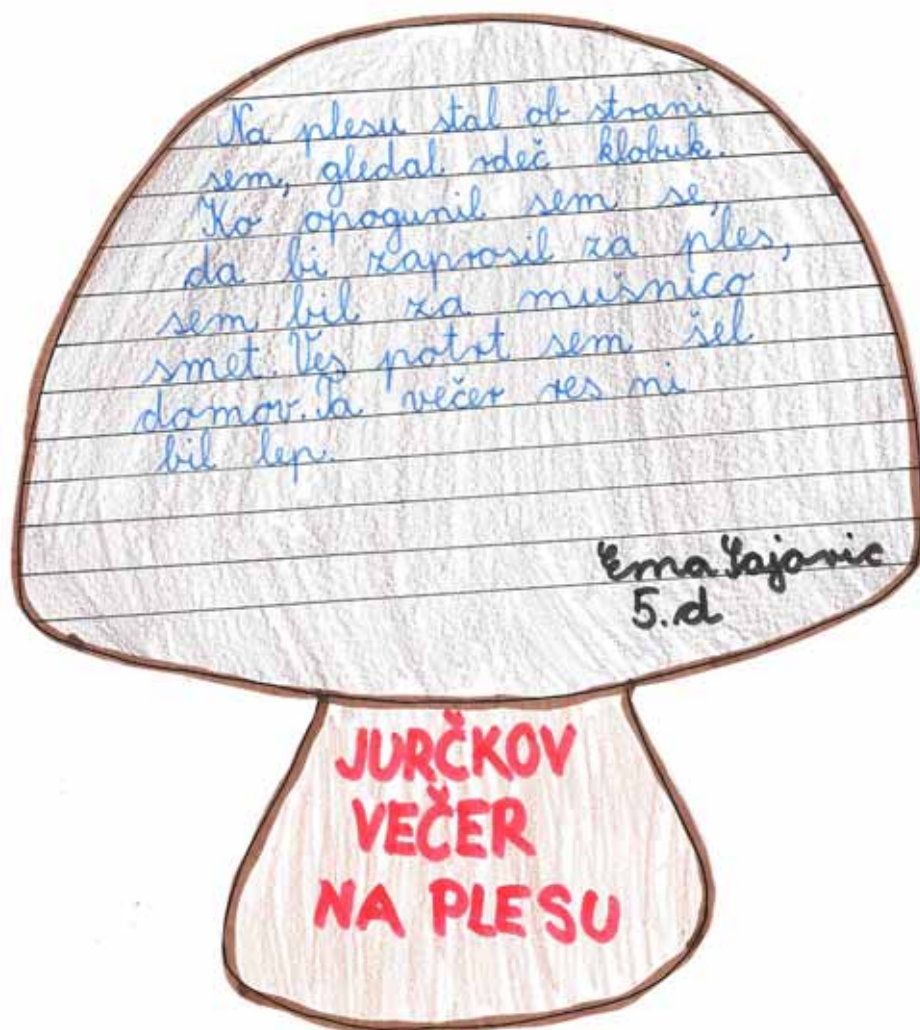 Na plesu stal ob strani
sem, gledal rdeč klobuk.
Ko opogunil sem se,
da bi zaprosil za ples,
sem bil za mušnico
smet. Ves potrt sem šel
domov. Ta večer res ni
bil lep.
Ema Sajovic
5. d
JURČKOV
VEČER
NA PLESU